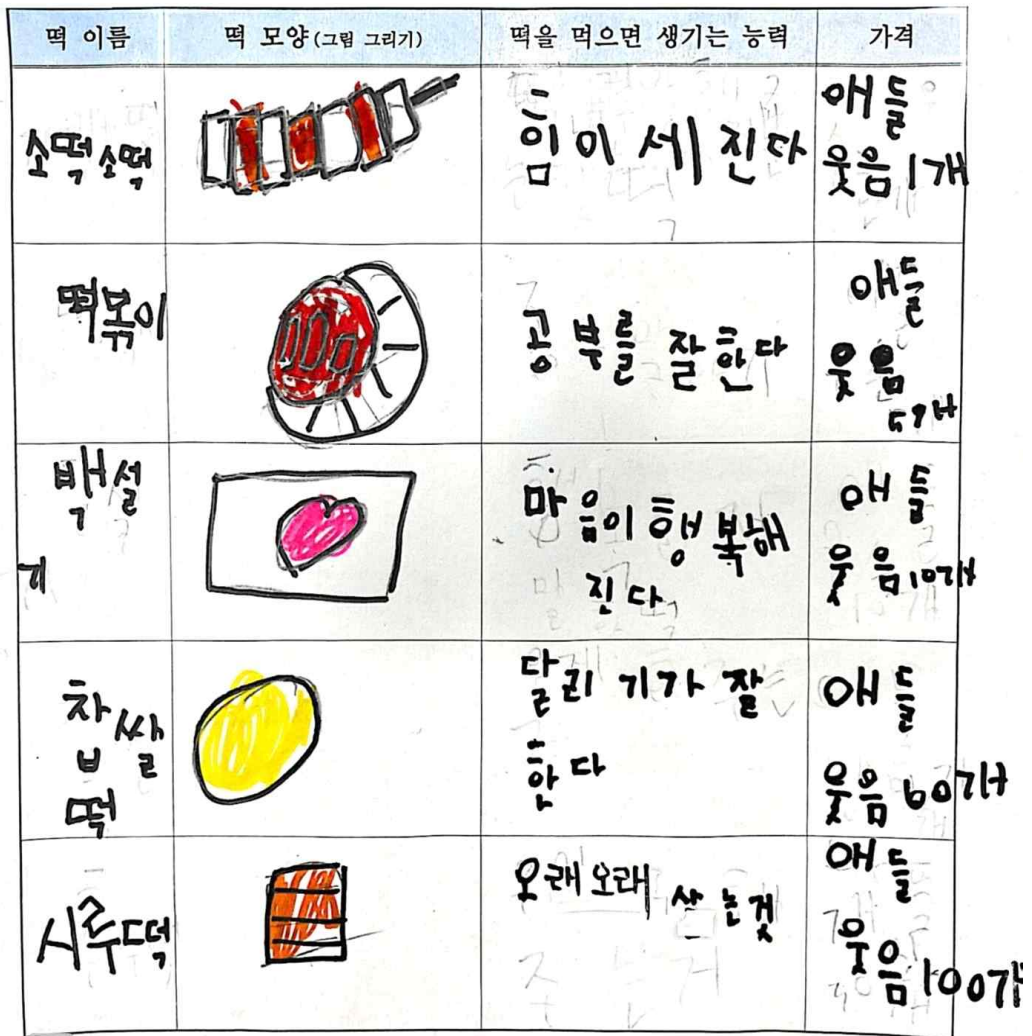 떡 이름 떡 모양(그림 그리기) 떡을 먹으면 생기는 능력 가격
소떡소떡 힘이 세진다 애들
웃음 1개
떡볶이 공부를 잘한다 애들
웃음
5개
백설
기
마음이 행복해
진다
애들
웃음 10개
찹쌀
떡
달리기가 잘
한다
애들
웃음 60개
시루떡 오래오래 사는것 애들
웃음 100개